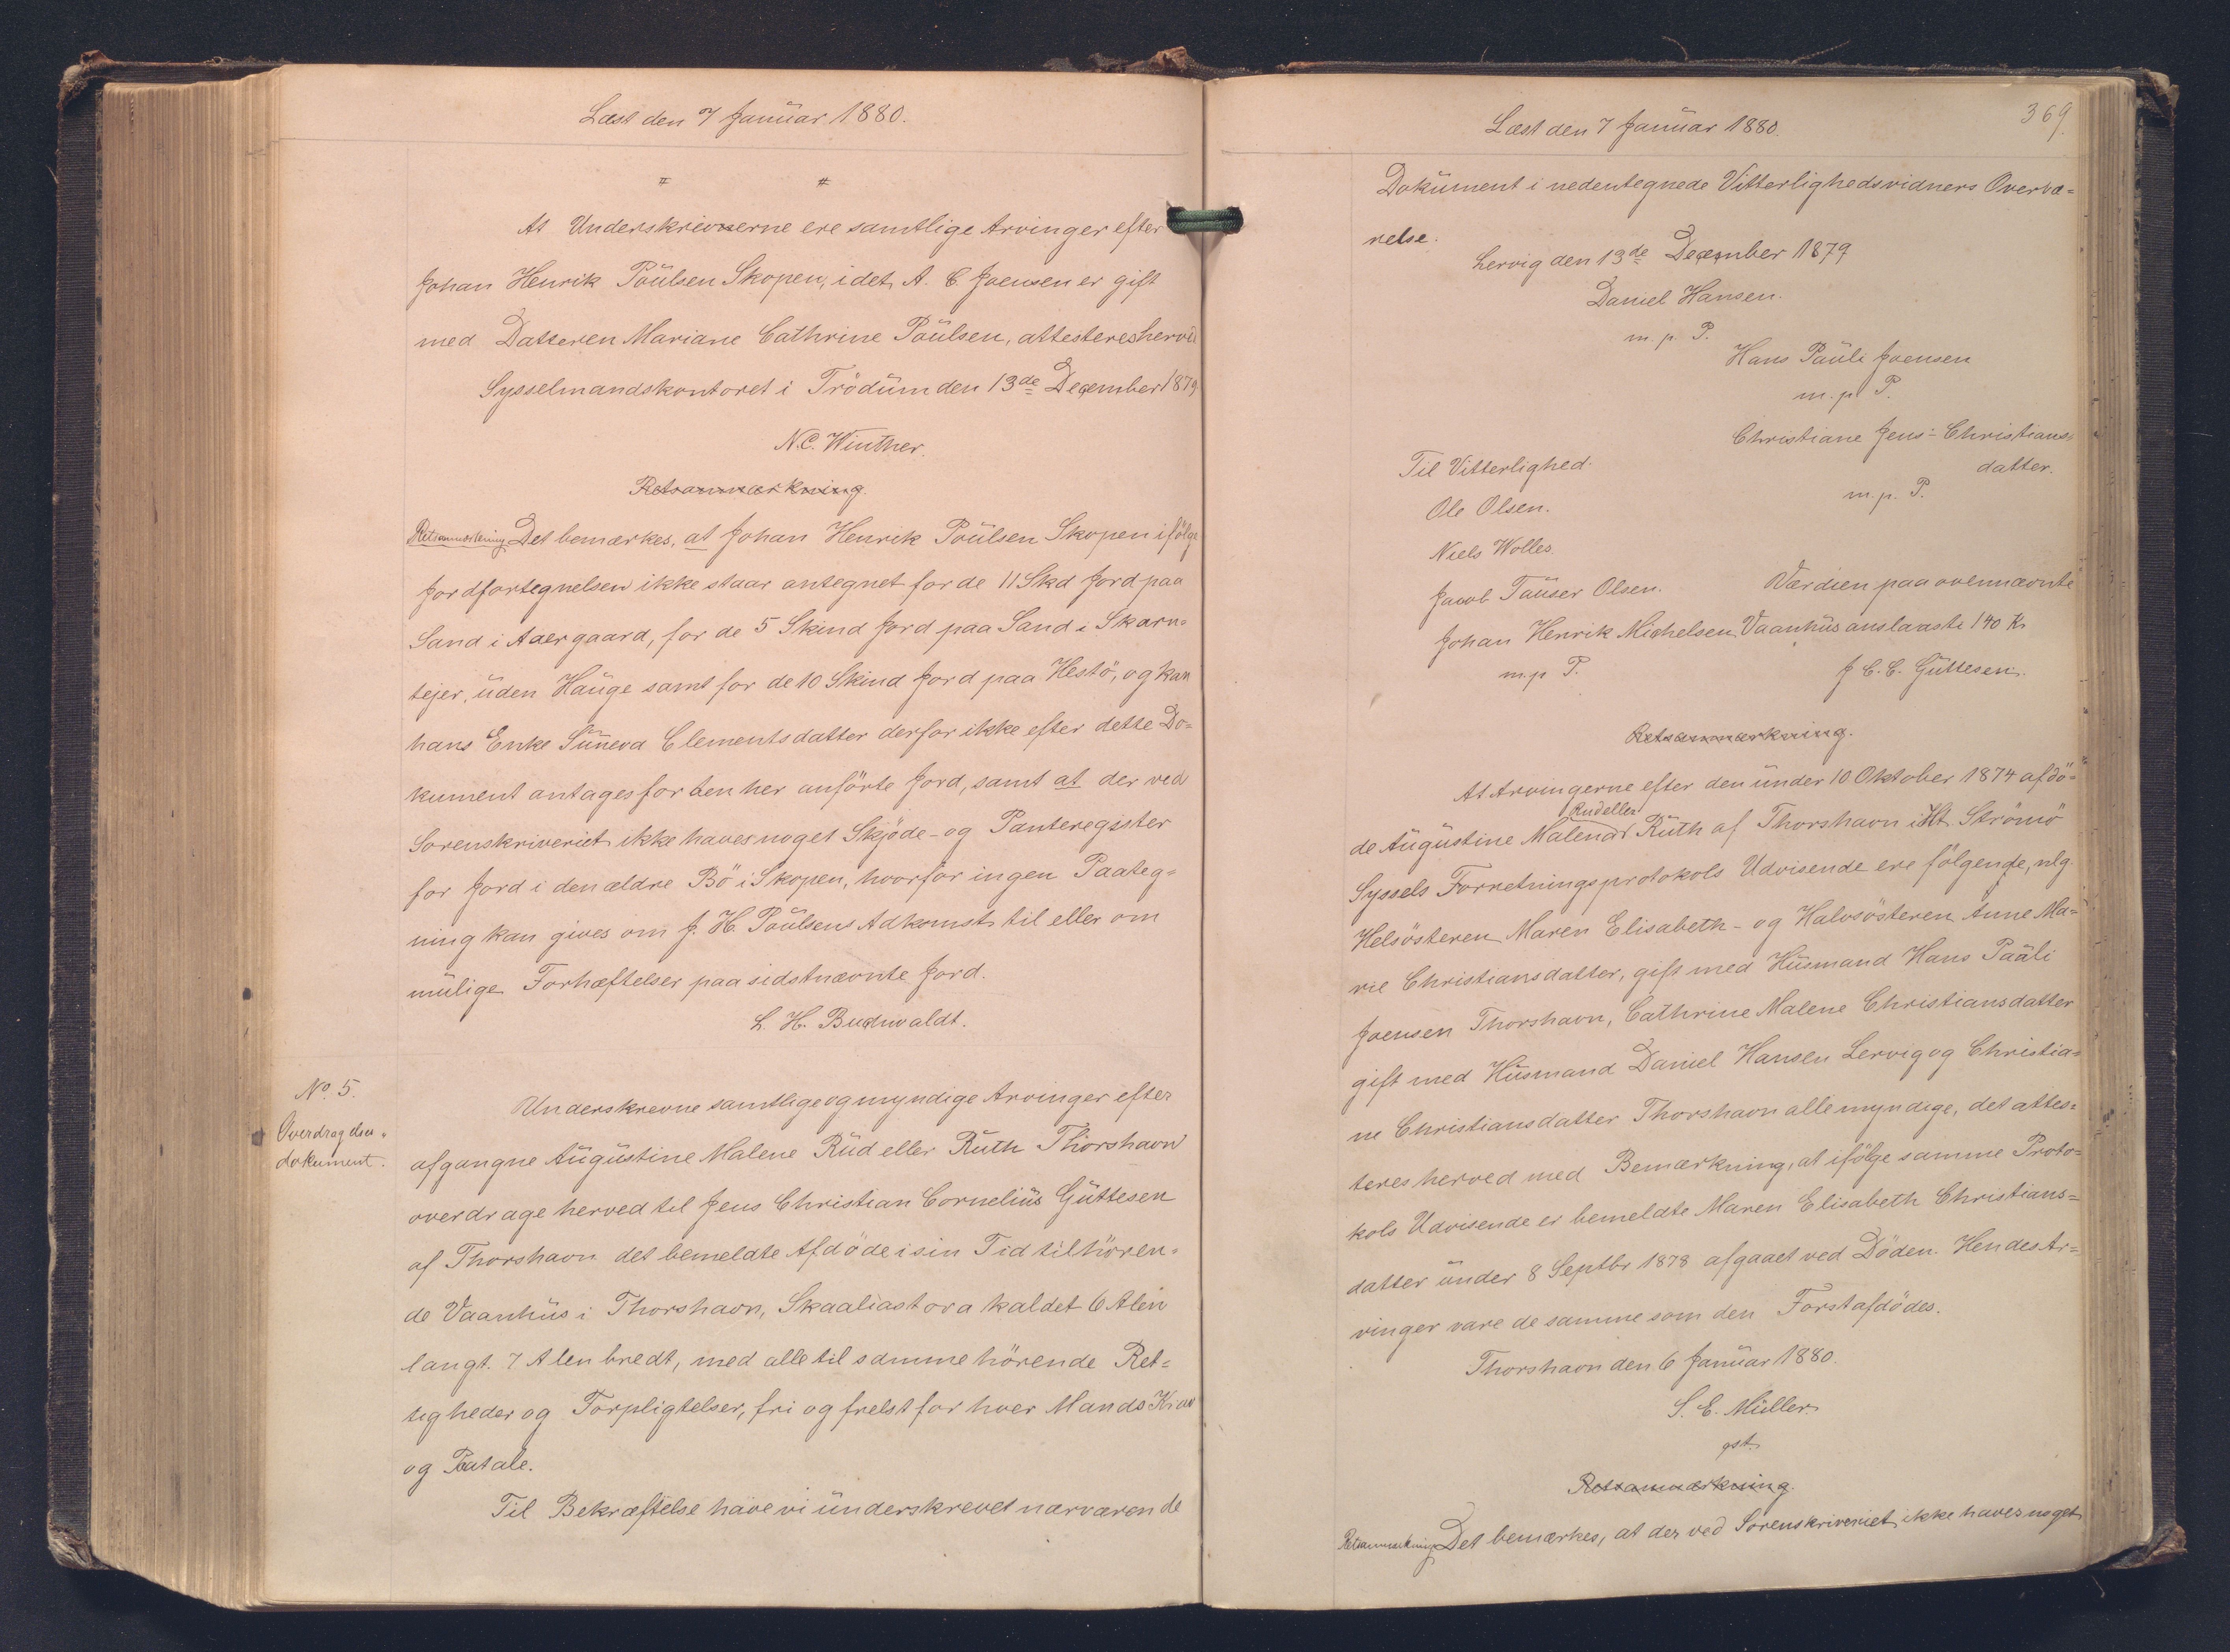 Læst den 7 Januar 1880.
At Underskriverne ere samtlige Arvinger efter
Johan Henrik Poulsen Skopen, idet A. C. Joensen er gift
med Datteren Mariane Cathrine Poulsen, attesteres herved
Sysselmandskontoret i Trödum den 13de December 1879
N.C. Winther.
Retsanmærkning.
Retsanmærkning Det bemærkes, at Johan Henrik Poulsen Skopen ifölge
Jordfortegnelsen ikke staar antegnet for de 11 Skd Jord paa
Sand i Aaergaard, for de 5 Skind Jord paa Sand i Skarn-
tejer, uden Hauge samt for de 10 Skind Jord paa Hestö, og kan
hans Enke Sunneva Clementsdatter derfor ikke efter dette Do=
kument antages for den her anförte Jord, samt at der ved
Sorenskriveriet ikke haves noget Skjöde- og Panteregister
for Jord i den ældre Bö i Skopen, hvorfor ingen Paateg=
ning kan gives om J. H. Poulsens Adkomst til eller om
mulige Forhæftelser paa sidstnævnte Jord.
L. H. Buchwaldt.
No. 5.
Overdragelses-
dokument.
Underskrevne samtlige og myndige Arvinger efter
afgangne Augustine Malene Rud eller Ruth Thorshavn
overdrage herved til Jens Christian Cornelius Guttesen
af Thorshavn det bemeldte Afdöde i sin Tid tilhören-
de Vaanhus i Thorshavn, Skaaliastova kaldet 6 Alen
langt. 7 Alen bredt, med alle til samme hörende Ret=
tigheder og Forpligtelser, fri og frelst for hver Mands Krav
og Paatale.
Til Bekræftelse have vi underskrevet nærværende
369.
Læst den 7 Januar 1880.
Dokument i nedentegnede Vitterlighedsvidners Overvæ=
relse.
Lervig den 13de December 1879
Daniel Hansen.
m. p. P.
Hans Pauli Joensen
m. p. P.
Christiane Jens-Christians
datter.
m. p. P.
Til Vitterlighed.
Ole Olsen.
Niels Wolles.
Jacob Tauser Olsen.
Værdien paa ovennævnte
Johan Henrik Michelsen
Vaanhus anslaaste 140 Kr
m. p P.
J C. C. Guttesen.
Retsanmærkning.
At Arvingerne efter den under 10 Oktober 1874 afdö=
Rud eller
de Augustine Malena Ruth af Thorshavn iflt. Strömö
Syssels Forretningsprotokols Udvisende ere fölgende, nlg.
Helsösteren Maren Elisabeth - og Halvsösteren Anne Ma=
rie Christiansdatter, gift med Husmand Hans Pauli
Joensen Thorshavn, Cathrine Malene Christiansdatter
gift med Husmand Daniel Hansen Lervig og Christia=
ne Christiansdatter Thorshavn alle myndige, det attes=
teres herved med Bemærkning, at ifölge samme Proto=
kols Udvisende er bemeldte Maren Elisabeth Christians=
datter under 8 Septbr 1878 afgaaet ved Döden. Hendes Ar=
vinger vare de samme som den Forstafdödes.
Thorshavn den 6 Januar 1880.
S. E. Müller
gst.
Retsanmærkning.
Retsanmærkning Det bemærkes, at der ved Sorenskriveriet ikke haves noget